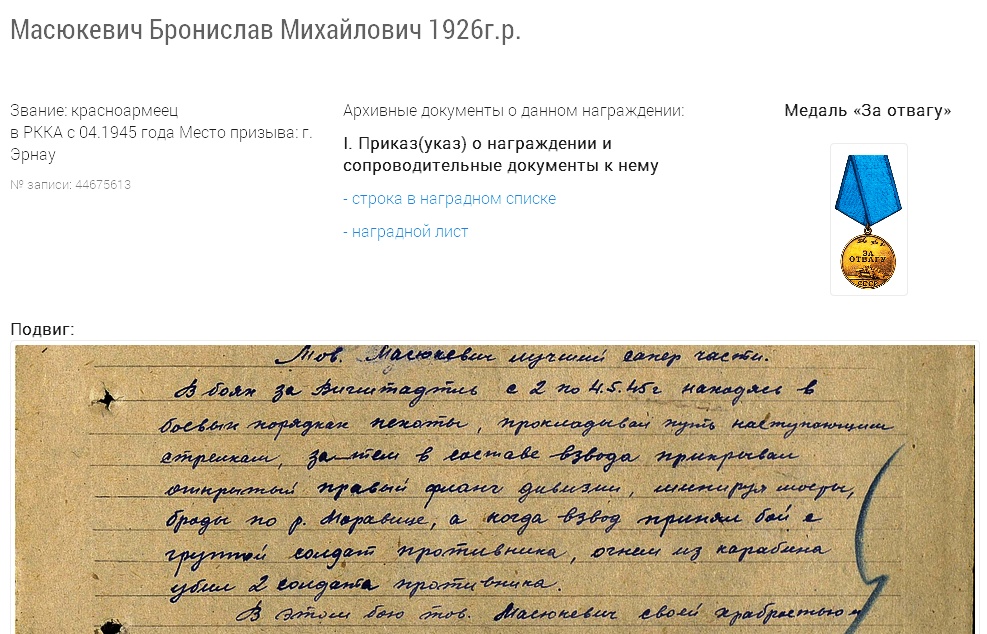 Масюкевич Бронислав Михайлович 1926г.р.
Звание: красноармеец
в РККА с 04.1945 года Место призыва: г.
Эрнау
№ записи: 44675613
Архивные документы о данном награждении:
I. Приказ(указ) о награждении и
сопроводительные документы к нему
- строка в наградном списке
- наградной лист
Медаль «За отвагу»
ЗА
ОТВАГУ
СССР
Подвиг:
Тов. Масюкевич лучший сапер части.
В боях за Вигштадтль с 2 по 4.5.45г находясь в
боевых порядках пехоты, прокладывал путь наступающим
стрелкам, затем в составе взвода прикрывал
открытый правый фланг дивизии, минируя мосты,
броды по р. Моравице, а когда взвод принял бой с
группой солдат противника, огнем из карабина
убил 2 солдата противника.
В этом бою тов. Масюкевич своей храбростью и